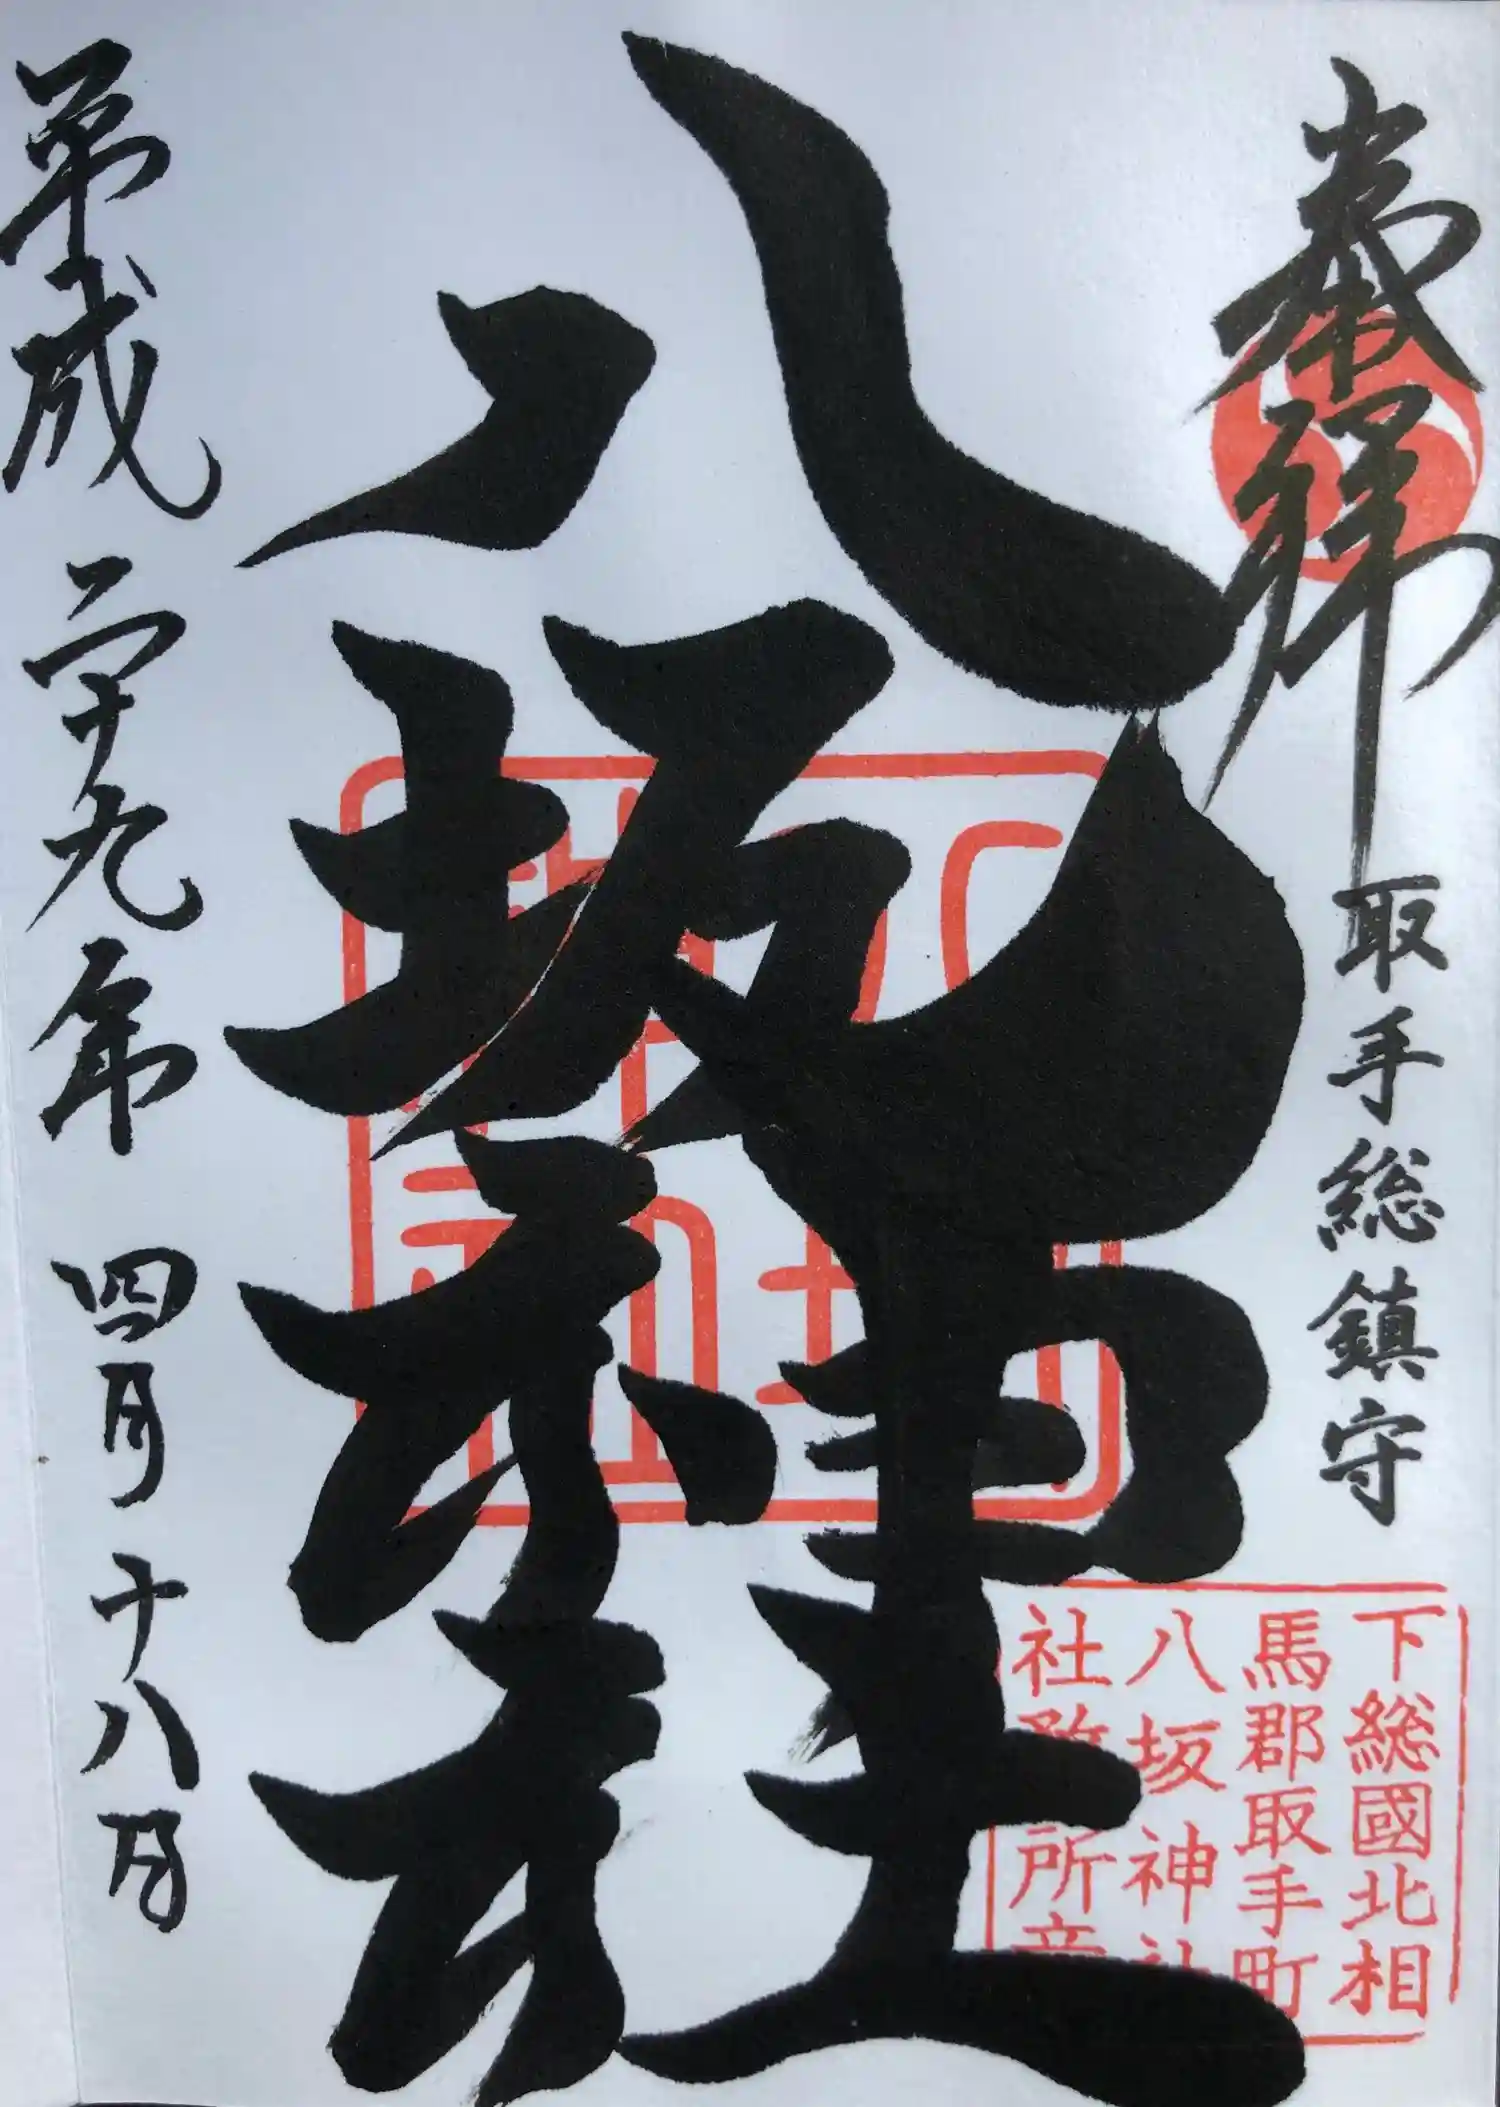 奉拝
取手総鎮守
八坂神社
平成二十九年 四月 十八日
八坂神社
下総國北相
馬郡取手町
八坂神社
社務所